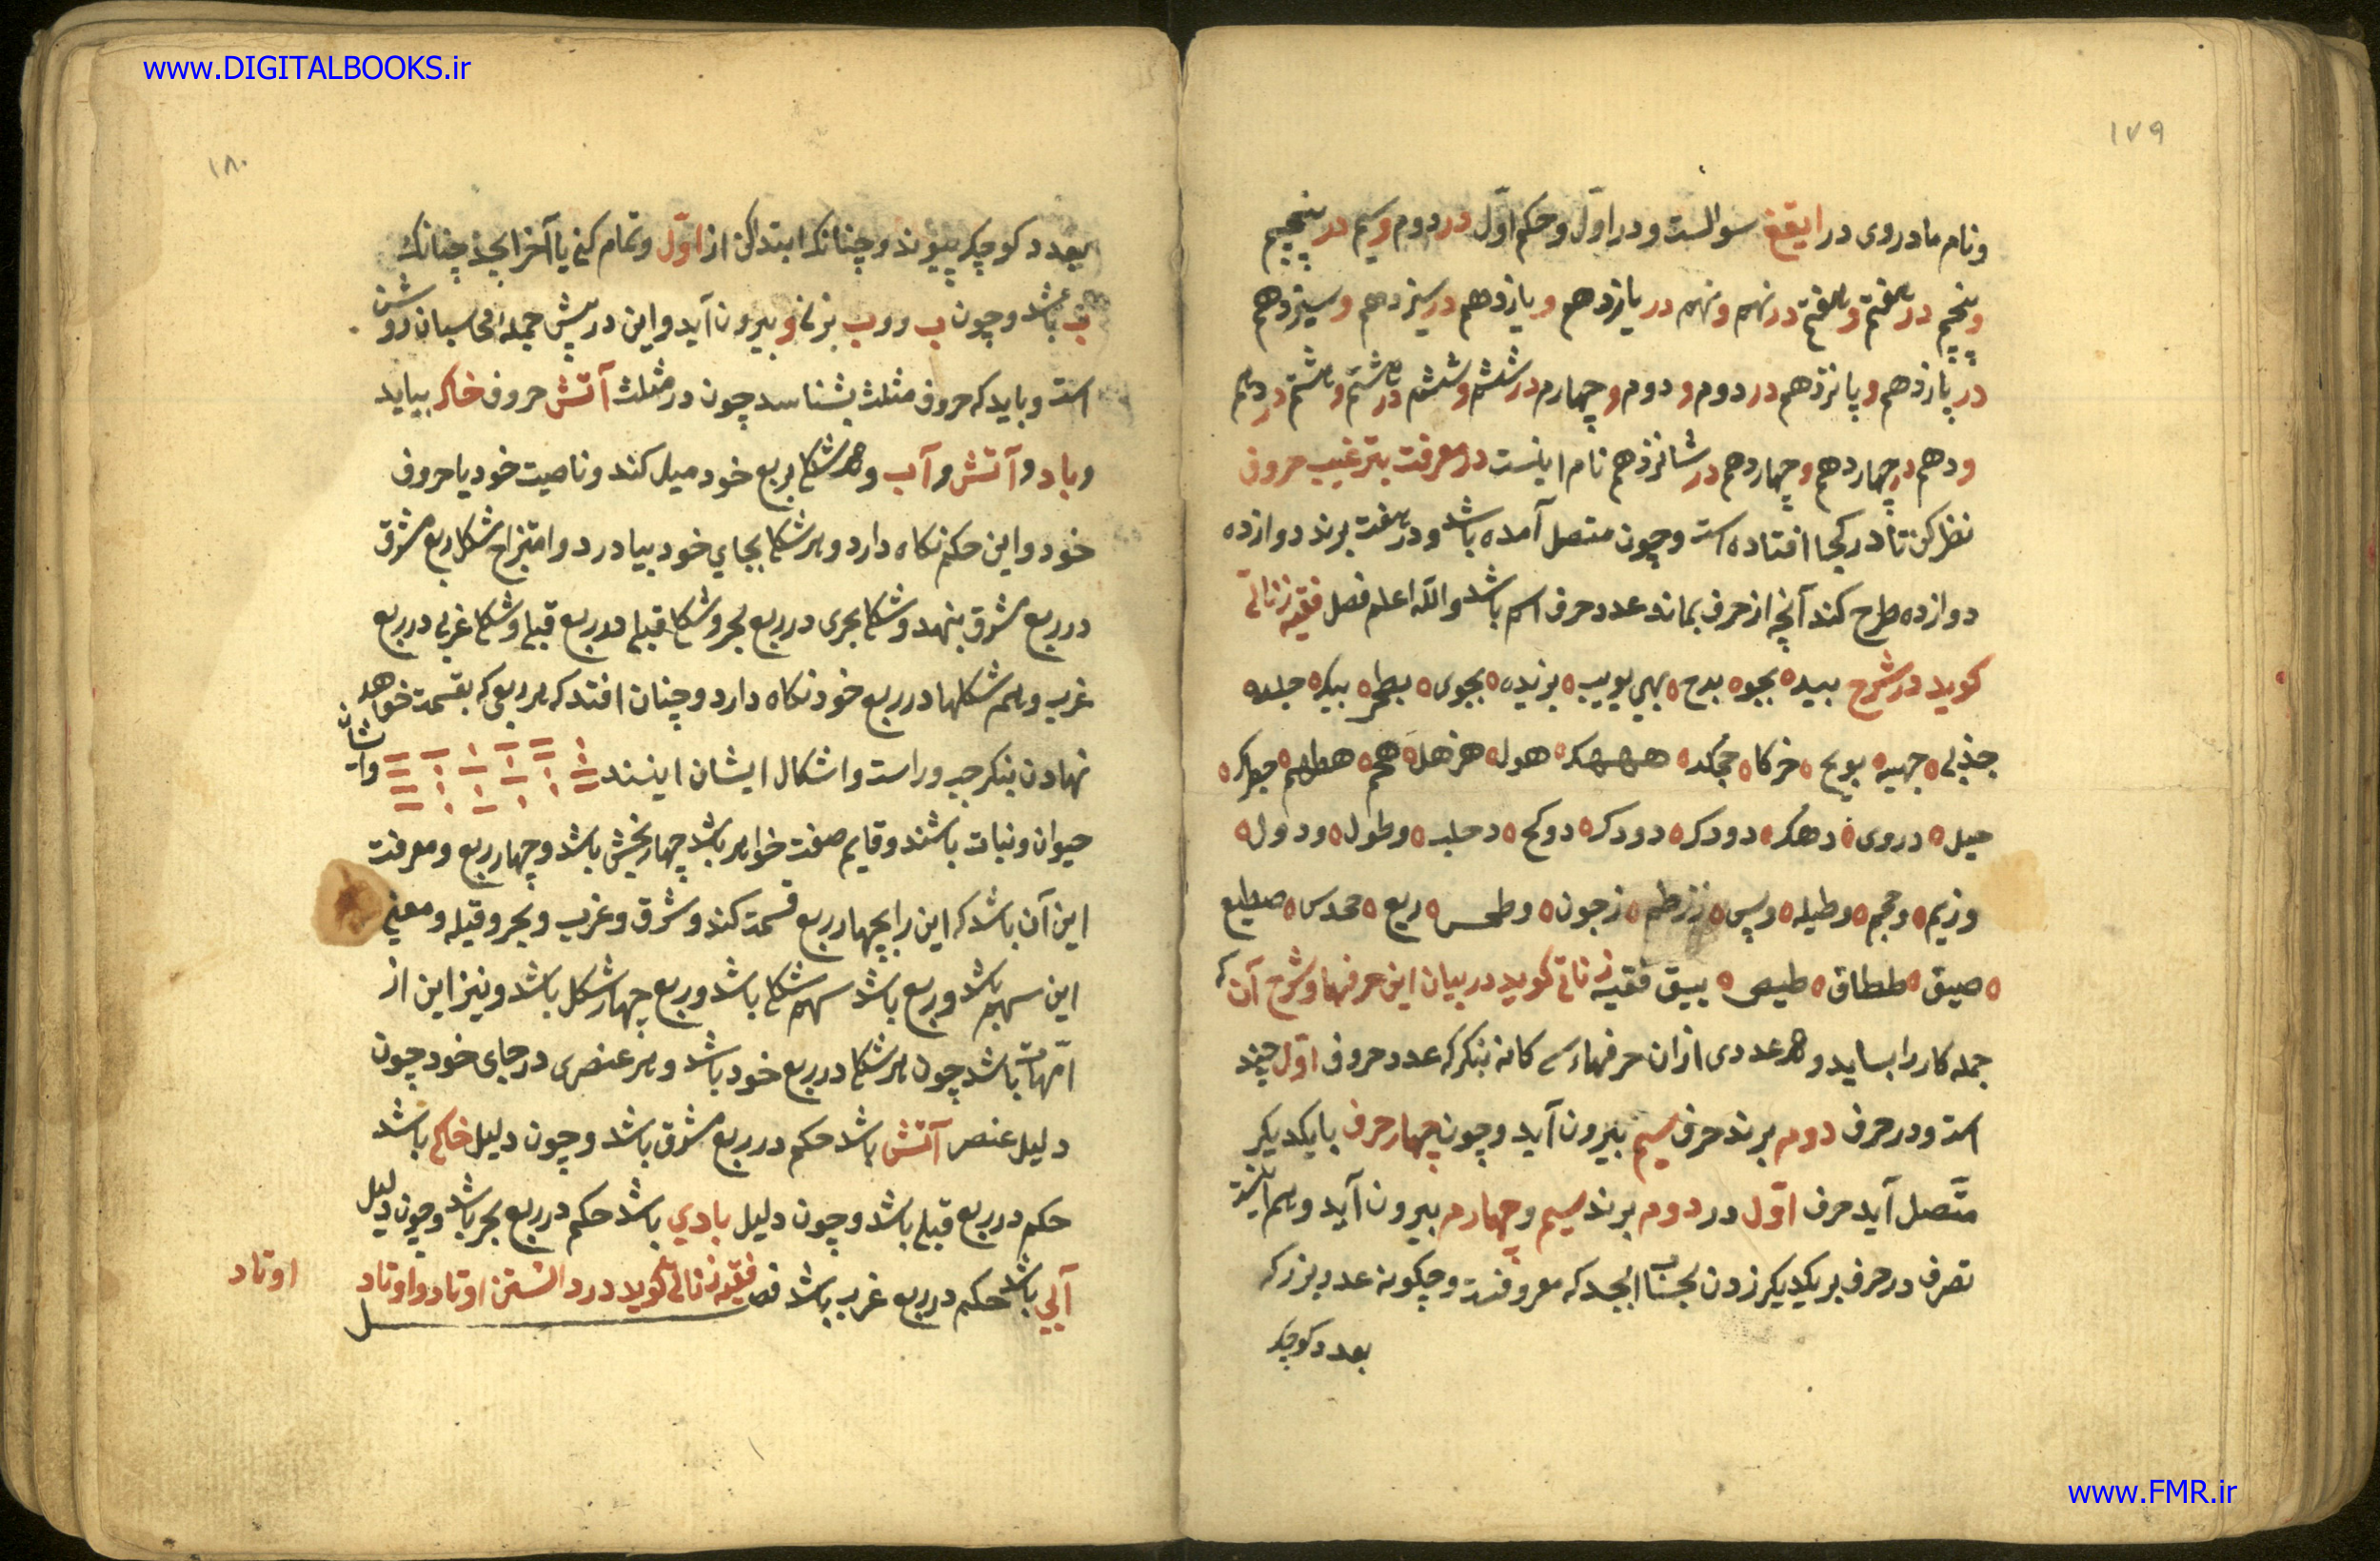 www.DIGITALBOOKS.ir
١٧٩
ونام مادروی در ایقغ سوالست ودر اوّل وحکم اوّل در دوم وسیم در پنجیم
وپنجم در هفتم وهفتم در نهم ونهم در یازدهم ویازدهم در سیزدهم وسیزدهم
در پانزدهم وپانزدهم در دوم ودوم وچهارم در ششم وششم در هشتم وهشتم در دهم
ودهم در چهاردهم وچهاردهم در شانزدهم نام اینست در معرفت بترغیب حروف
نظر کن تا در کجا افتاده است وچون متصل آمده باشد ودر هفت برند دوازده
دوازده طرح کند آنچه از حرف بماند عدد حرف اسم باشد والله اعلم فصل فقیه زناتی
کوید در شرح بید بجو بدح بهی یوبیب بزیده بجوی بطح بیکه جلعه
جذبی جهیه یویح خرکا جحکد هههک هول هزهل هم هطهم جوک
میل دروی دهک دودک دودک دوکح دحلبه وطول ودول
وزیم وحجم وطیله ویس ززطم زجون وطس ربع محدس صطیع
صیق ططاق طیص ببیق فقیه زناتی کوید در بیان این حرفها وشرح آن که
جمله کار را بساید وهر عددی از ان حرفهاء سه کانه بنکر که عدد حروف اوّل چند
است ودر حرف دوم برند حرف سیم بیرون آید وچون چهار حرف با یکدیکر
متّصل آید حرف اوّل در دوم برند سیم وچهارم بیرون آید وهم اینست
تصرف در حرف بر یکدیکر زدن بحساب ابجد که معروفست وچکونه عدد بزرک
بعدد کوچک
١٨٠
بعدد کوچک پیوند وچنانک ابتدا کن از اوّل وتمام کنی یا آخر ابجد چنانک
ب باشد وچون ب ورب بزنی و بیرون آید واین در پیش جمله محاسبان روشن
است وباید که حروف مثلث بشناسد چون در مثلث آتش حروف خاک بیاید
وباد وآتش وآب وهر شکل بربع خود میل کند وناصیت خود یا حروف
خود واین حکم نکاه دارد وهر شکل بجای خود بیاورد وامتزاج شکل ربع مشرق
در ربع مشرق بنهد وشکل بحری در ربع بحر وشکل قبلی در ربع قبلی وشکل غربی در ربع
غرب وهم شکلها در ربع خود نکاه دارد وچنان افتد که هر ربعی که بقسمت خواهد
نهادن بنکر چپ وراست واشکال ایشان اینند وایشان
حیوان ونبات باشند وقایم صفت خواهر باشد چهار بخش باشد وچهار ربع ومعرفت
این آن باشد که این را بچهار ربع قسمت کند وشرق وغرب وبحر وقبله ومعنی
این سهم باشد وربع باشد سهم شکل باشد وربع چهار شکل باشد ونیز این از
امّهات باشد چون هر شکل در ربع خود باشد وهر عنصری در جای خود چون
دلیل عنصر آتش باشد حکم در ربع مشرق باشد وچون دلیل خاکی باشد
حکم در ربع قبله باشد وچون دلیل بادی باشد حکم در ربع بحر باشد وچون دلیل
آبی باشد حکم در ربع غرب باشد فصل فقیه زناتی کوید در دانستن اوتاد واوتاد
اوتاد
www.FMR.ir